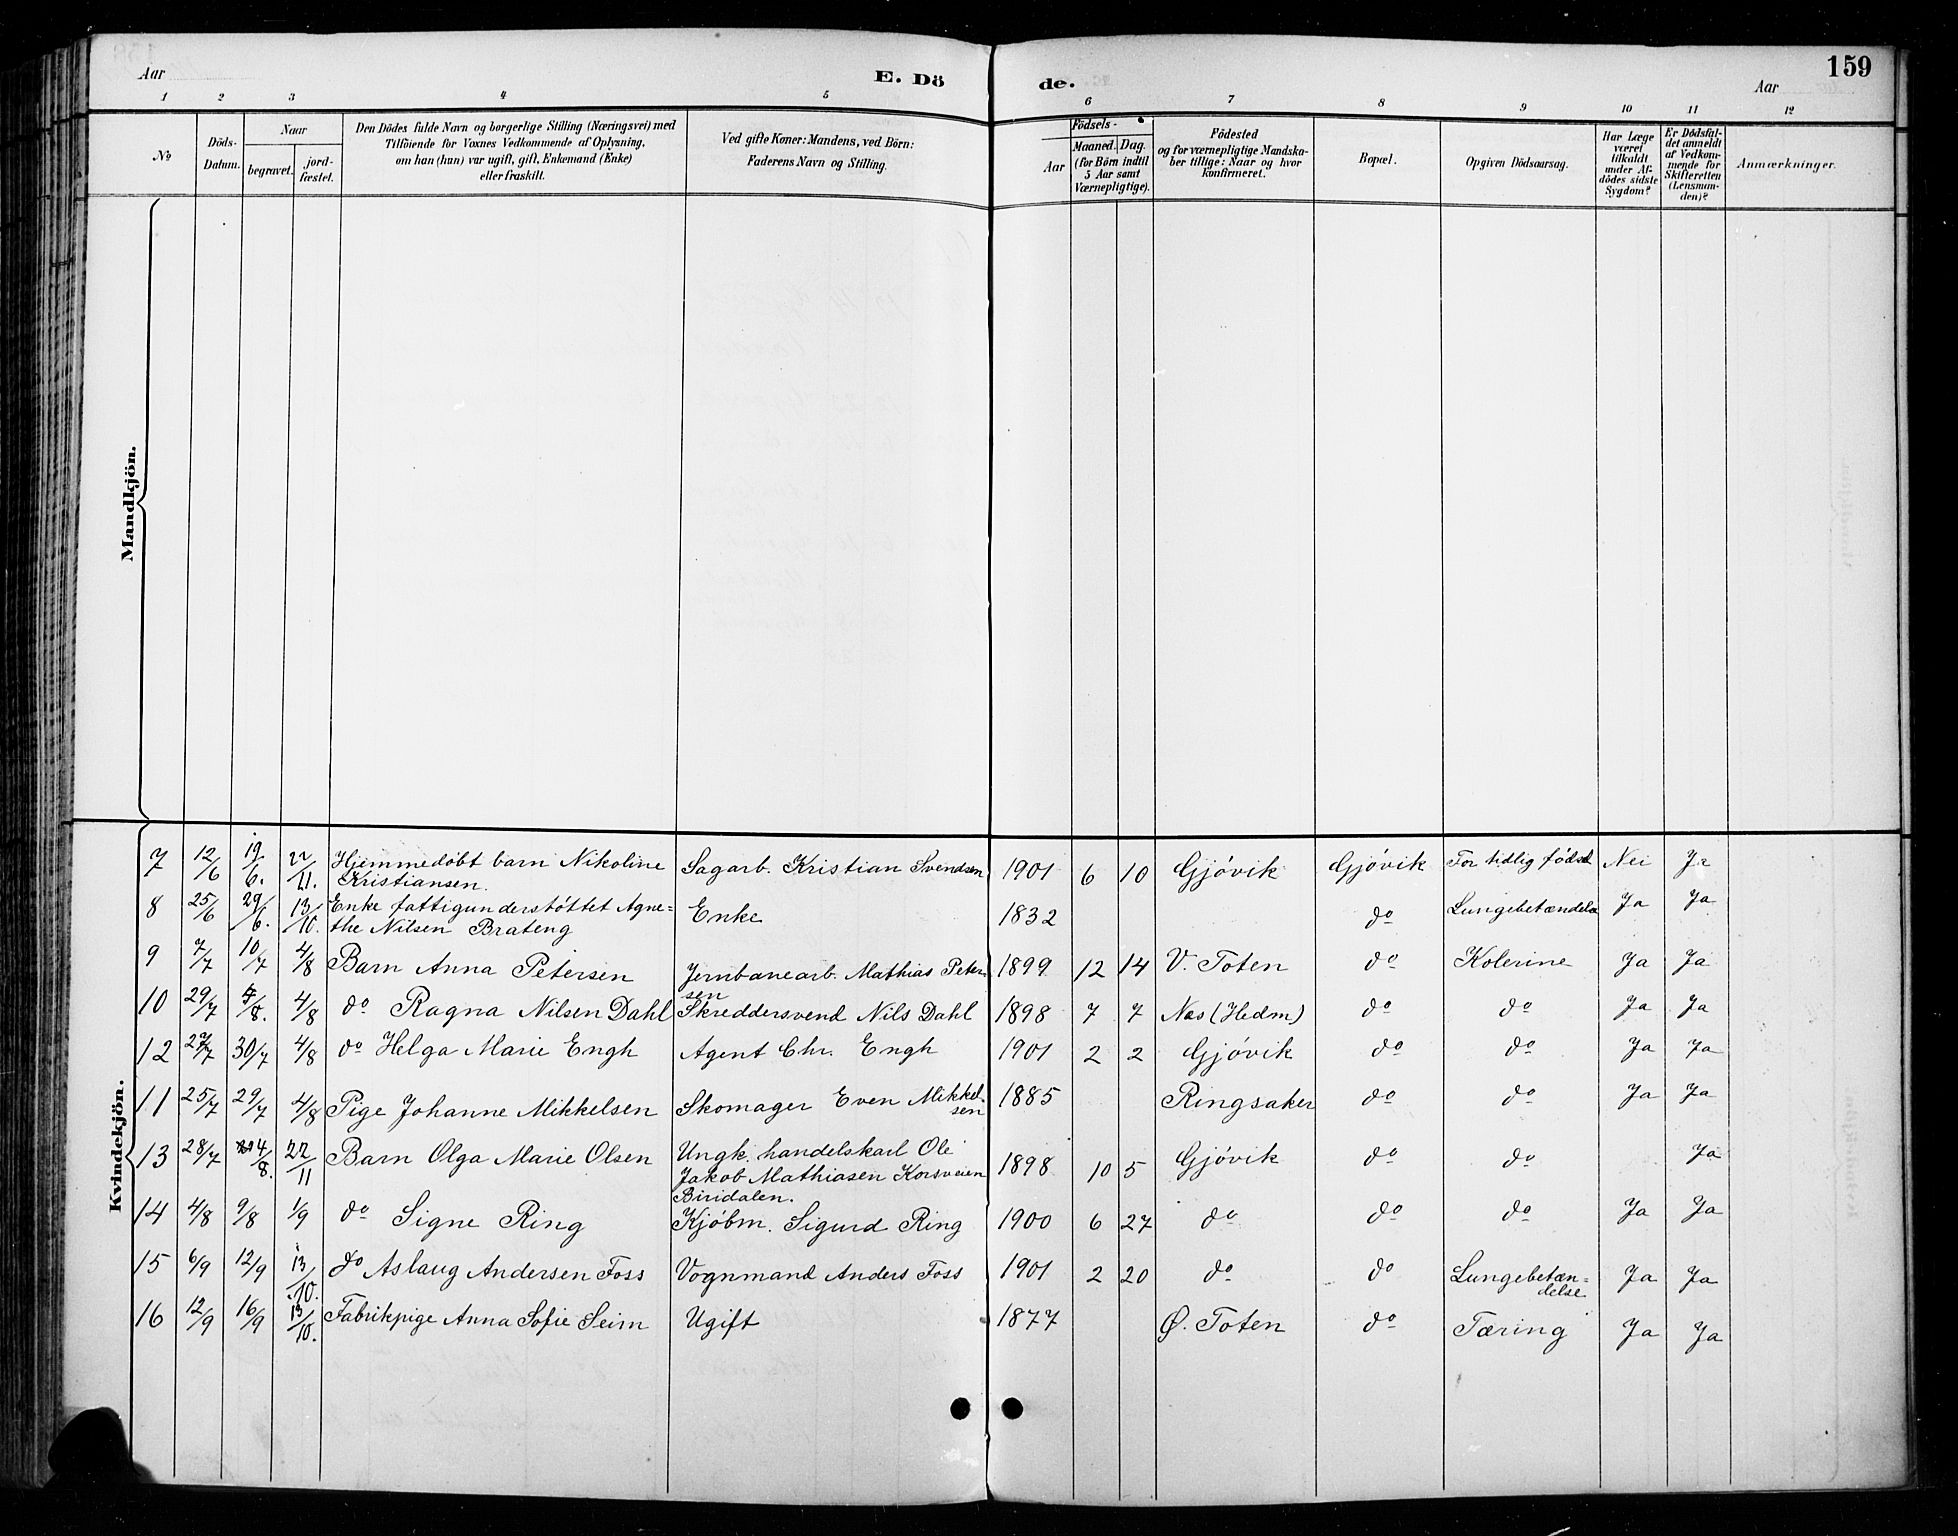 Aar
E. Dö
de.
Aar
159
1 2 3 4 5 6 7 8 9 10 11 12
No
Döds-
Datum.
Naar
begravet.
jord-
fæstet.
Den Dödes fulde Navn og borgerlige Stilling (Næringsvei) med
Tilföiende for Voxnes Vedkommende af Oplysning,
om han (hun) var ugift, gift, Enkemand (Enke)
eller fraskilt.
Ved gifte Koner: Mandens, ved Börn:
Faderens Navn og Stilling.
Födsels-
Aar
Maaned.
Dag.
(for Börn indtil
5 Aar samt
Værnepligtige).
Födested
og for værnepligtige Mandska-
ber tillige: Naar og hvor
konfirmeret.
Bopæl.
Opgiven Dödsaarsag.
Har Læge
været
tilkaldt
under Af-
dödes sidste
Sygdom?
Er Dödsfal-
det anmeldt
af Vedkom-
mende for
Skifteretten
(Lensman-
den)?
Anmærkninger.
Mandkjön.
Kvindekjön.
7 12/6 19/6. 22/11. Hjemmedøbt barn Nikoline Sagarb. Kristian Svendsen 1901 6 10 Gjövik Gjövik For tidlig födsel Nei Ja
Kristiansen.
8 25/6 29/6. 13/10. Enke fattigunderstöttet Agne= Enke 1832 do Lungebetændelse Ja Ja
the Nilsen Brateng
9 7/7 10/7 4/8 Barn Anna Petersen Jernbanearb. Mathias Peter- 1899 12 14 V. Toten do Kolerine Ja Ja
sen
10 29/7 /8. 4/8 do Ragna Nilsen Dahl Skreddersvend Nils Dahl 1898 7 7 Nes (Hedm) do do Ja Ja
12 27/7 30/7 4/8 do Helga Marie Engh Agent Chr. Engh 1901 2 2 Gjövik do do Ja Ja
11 25/7 29/7 4/8 Pige Johanne Mikkelsen Skomager Even Mikkel- 1885 Ringsaker do do Ja Ja
sen
13 28/7 4/8. 22/11 Barn Olga Marie Olsen Ungk. handelskarl Ole 1898 10 5 Gjövik do do Ja
Jakob Mathiasen Korsveien
Biridalen.
14 4/8 9/8 1/9 do Signe Ring Kjöbm. Sigurd Ring 1900 6 27 do do do Ja Ja
15 6/9 12/9 13/10. do Aslaug Andersen Foss Vognmand Anders Foss 1901 2 20 do do Lungebetæn= Ja Ja
delse
16 12/9 16/9 13/10. Fabrikpige Anna Sofie Seim Ugift 1877 Ø. Toten do Tæring Ja Ja